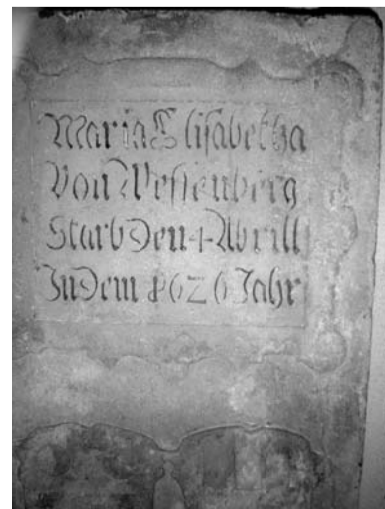 Maria Elisabetha
Von Wessenberg
Starb Den 4 Abrill
In Dem 1626 Jahr